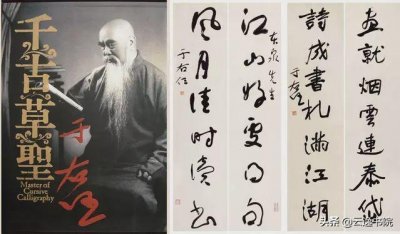 千古草聖
Master of
Cursive
Calligraphy
于右任
江山好處得句
風月佳時讀書
于右任
画就烟雲連泰岱
詩成書札滿江湖
于右任
头条